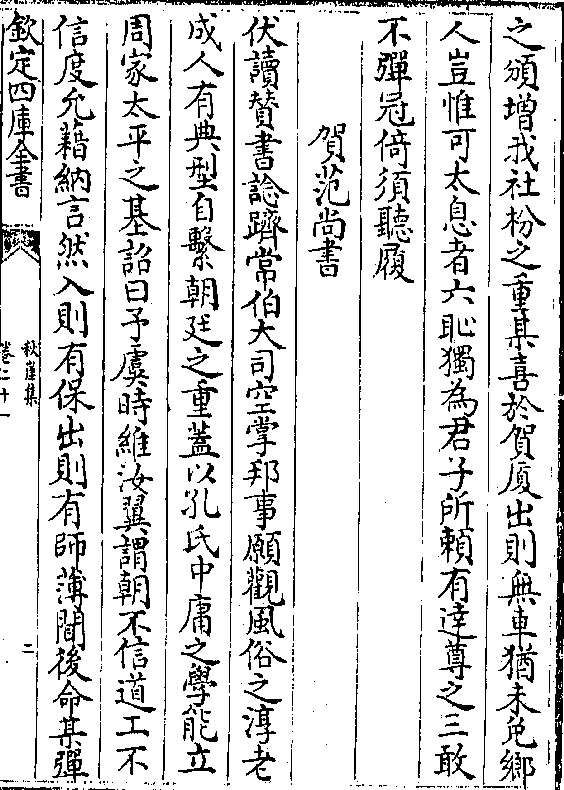 之頒增我社枌之重其喜於賀厦出則無車猶未免鄉
人豈惟可太息者六恥獨為君子所賴有達尊之三敢
不彈冠倚須聽履
賀范尚書
伏讀贊書諗躋常伯大司空掌邦事願觀風俗之淳老
成人有典型自繫朝廷之重蓋以孔氏中庸之學能立
周家太平之基詔曰予虞時維汝翼謂朝不信道工不
信度允藉納言然入則有保出則有師薄閒後命某彈
欽定四庫全書
秋崖集
卷二十一
二